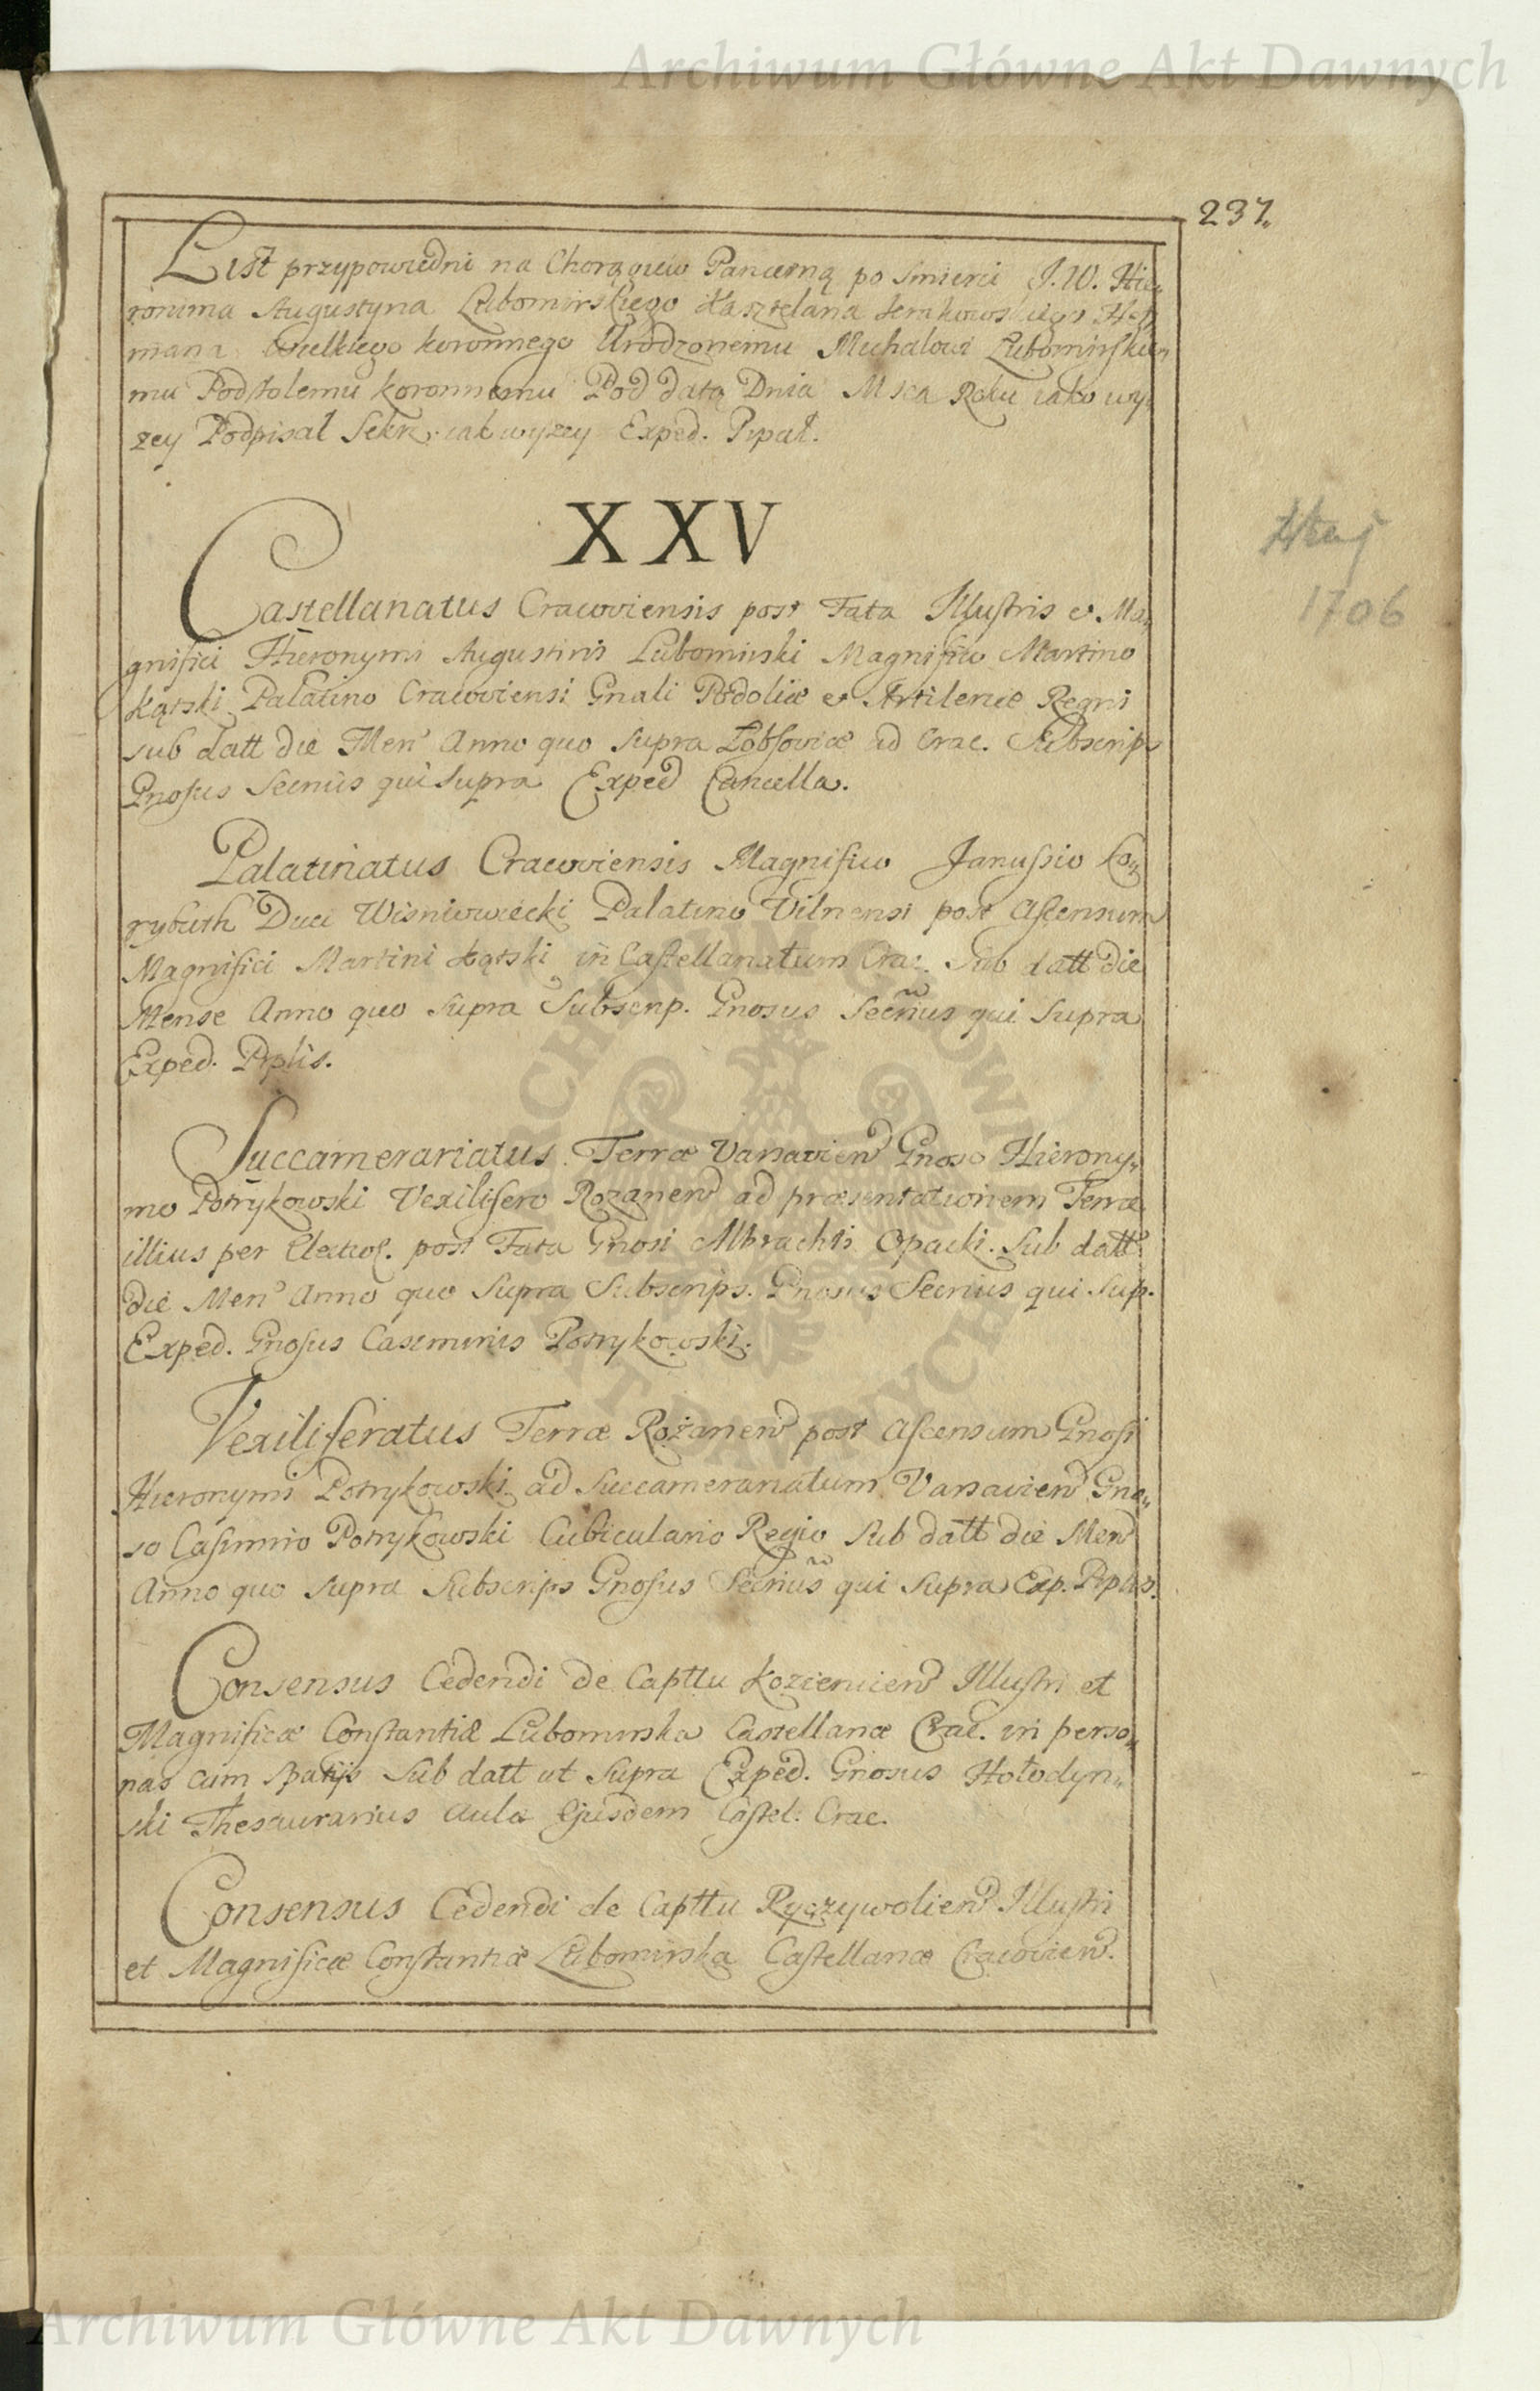 Archiwum Główne Akt Dawnych
237.
List przypowiedni na Chorągiew Pancerną po smierci J.W. Hie„
ronima Augustyna Lubomirskiego Kasztelana Krakowskiego Het„
mana Wielkiego koronnego Urodzonemu Michałowi Lubomirskie„
mu Podstolemu koronnemu Pod datą Dnia Msca Roku iako wy„
zey Podpisał Sekr. iak wyzey Exped. Prpał.
XXV
Castellanatus Cracoviensis post Fata Illustris et Ma„
gnifici Hieronymi Augustini Lubomirski Magnifico Martino
Kątski Palatino Cracoviensi Gnali Podoliæ et Artileriæ Regni
sub datt die Men̄ Anno quo supra Łobsoviæ ad Crac. Subscrip
Gnosus Secrius qui supra Exped Cancella.
Palatinatus Cracoviensis Magnifico Janussio Co„
rybuth Duci Wisniowiecki Palatino Vilnensi post Ascensum
Magnifici Martini Kątski in Castellanatum Crac. Sub datt die
Mense Anno quo supra Subscrip. Gnosus Secrius qui supra
Exped. Prplis.
Succamerariatus Terræ Varsavien̄ Gnoso Hierony„
mo Potrykowski Vexilifero Rozanen̄ ad præsentationem Terræ
illius per Electio. post Fata Gnosi Albrachti Opacki. Sub datt
die Men̄ Anno quo supra Subscrips. Gnosus Secrius qui sup.
Exped. Gnosus Casimirus Potrykowski.
Vexiliferatus Terræ Rożanen̄ post Ascensum Gnosi
Hieronymi Potrykowski ad Succamerariatum Varsavien̄ Gno„
so Casimiro Potrykowski Cubiculario Regio Sub datt die Men̄
Anno quo supra Subscrips Gnosus Secrius qui supra Exp. Prplis.
Consensus Cedendi de Capttu Kozienicen̄ Illustri et
Magnificæ Constantiæ Lubomirska Castellanæ Crac. in perso„
nas cum spatijs Sub datt ut supra Exped. Gnosus Hołodyn„
ski Thesaurarius Aulæ Ejusdem Castel: Crac.
Consensus Cedendi de Capttu Ryczywolien̄ Illustri
et Magnificæ Constantiæ Lubomirska Castellanæ Cracovien̄.
1706
ARCHIWUM GŁÓWNE AKT DAWNYCH
Archiwum Główne Akt Dawnych